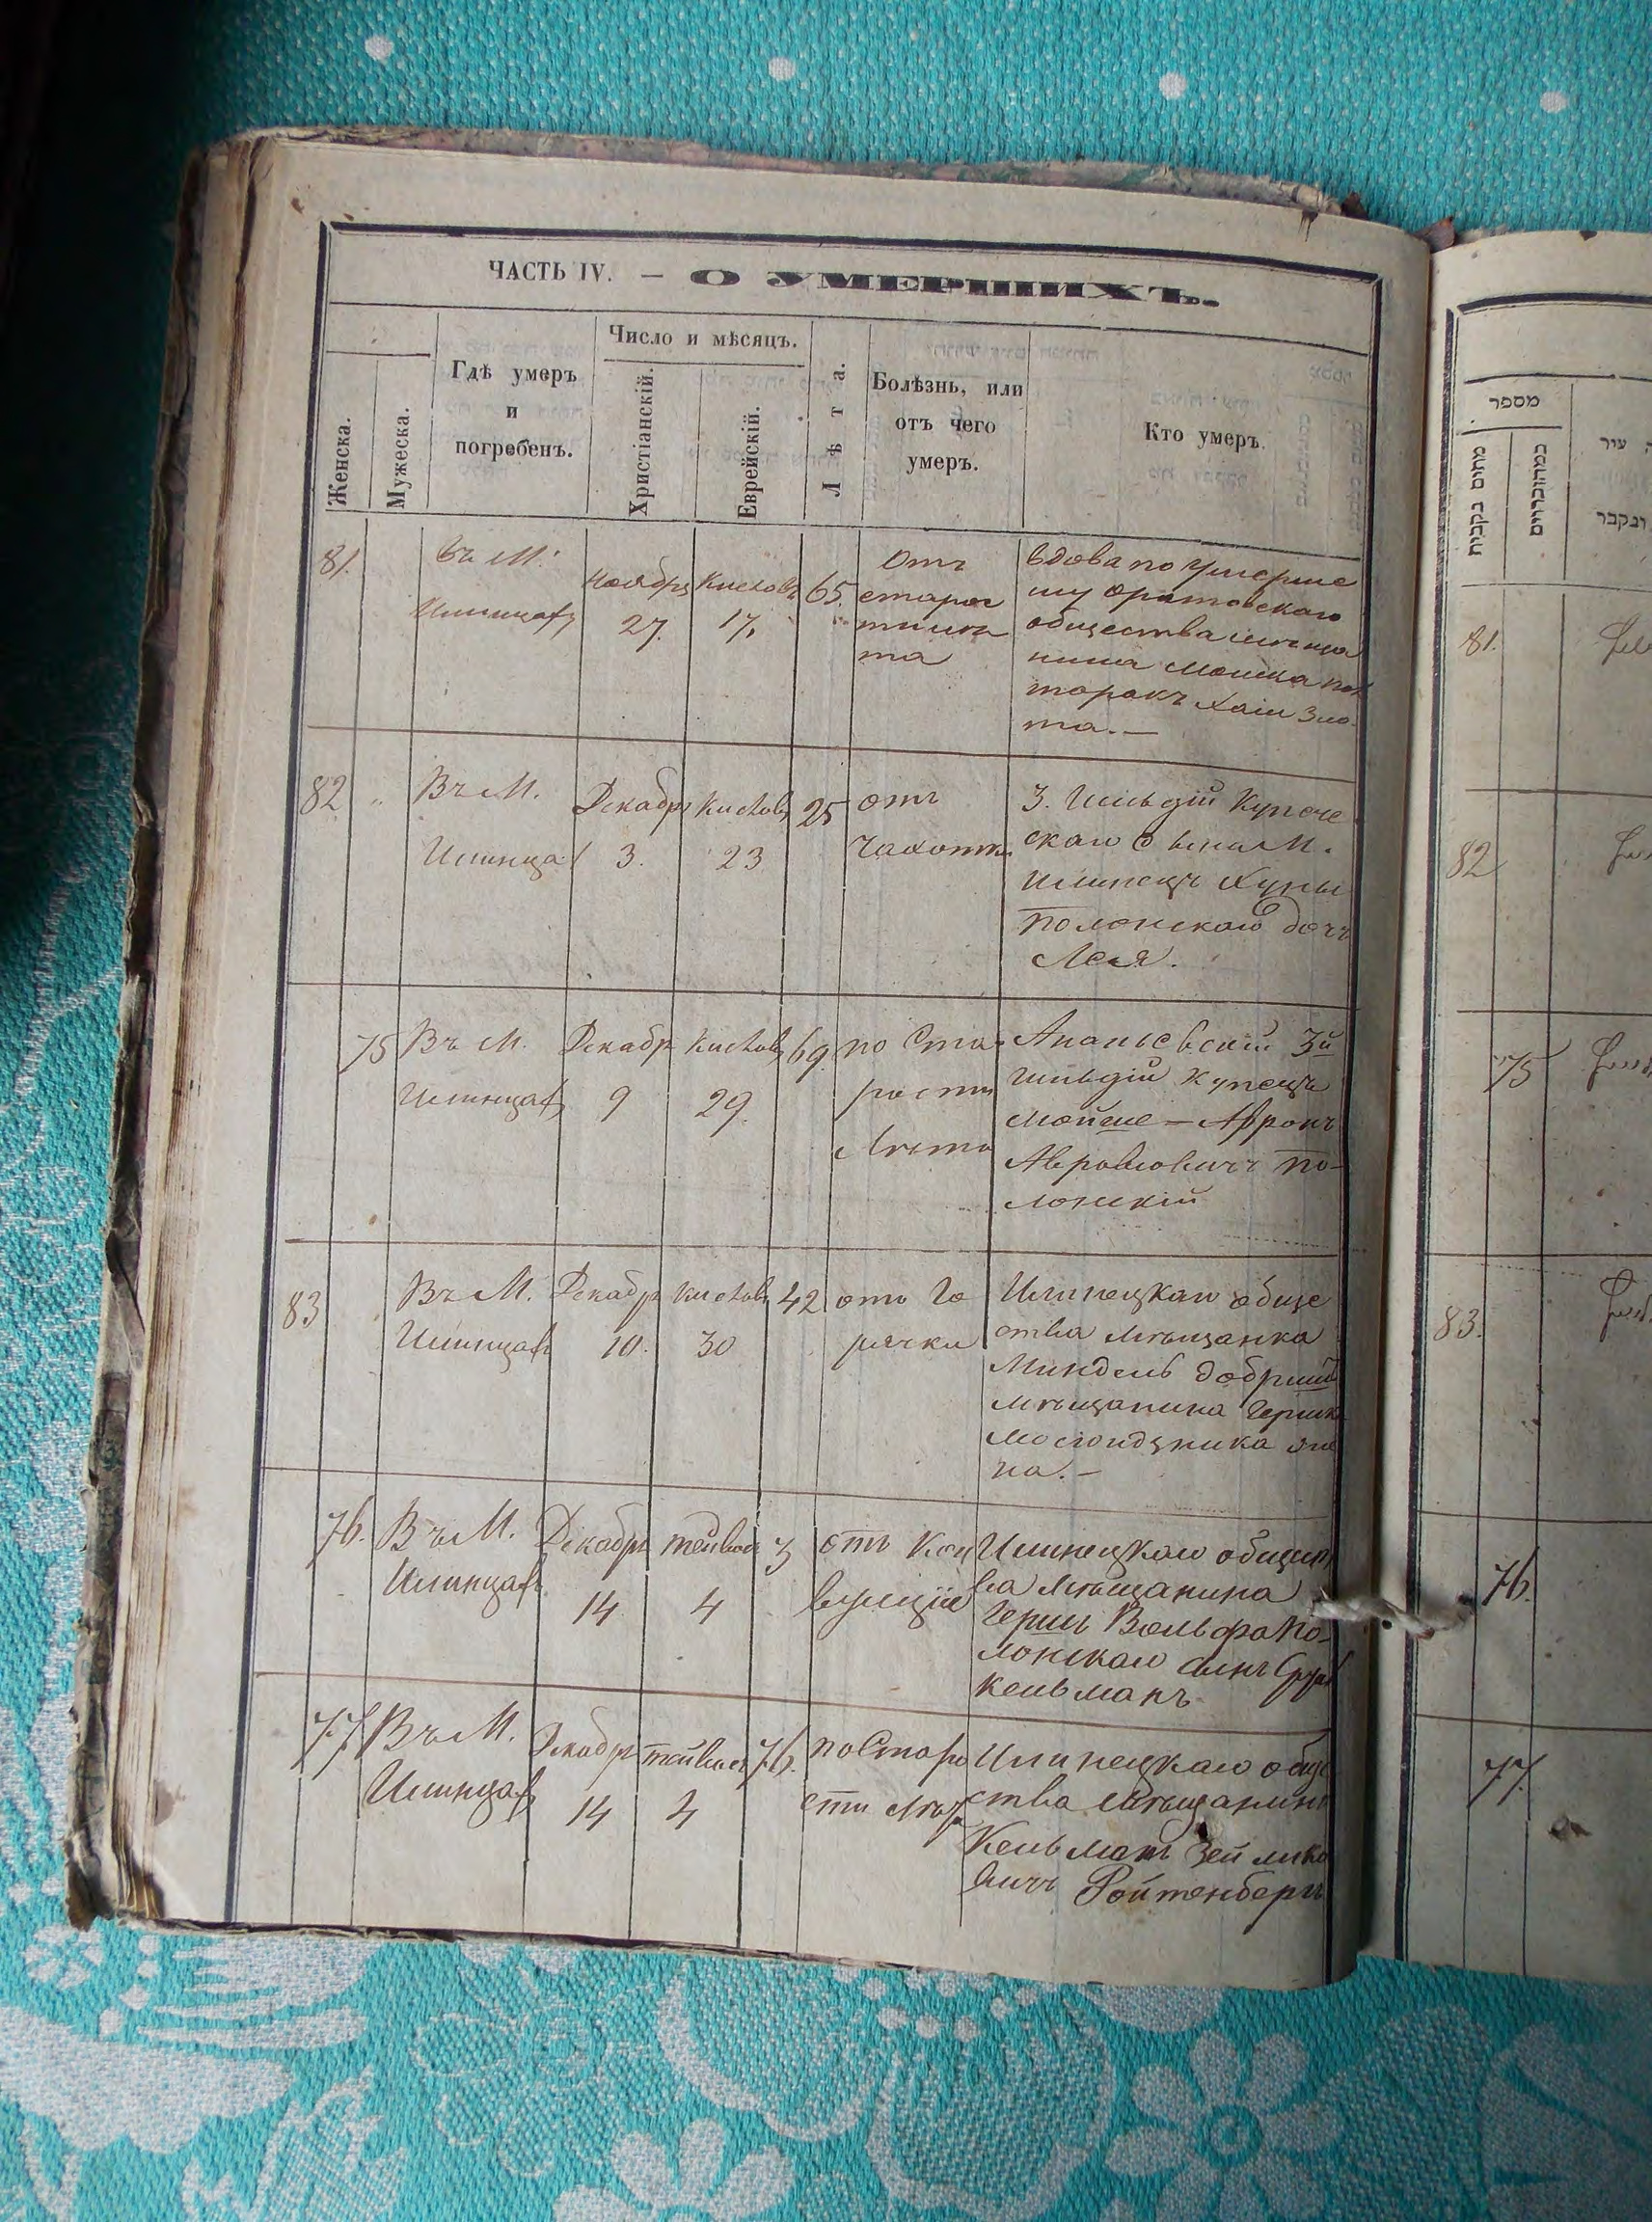 ЧАСТЬ IV. — О УМЕРШИХЪ.
Женска.
Мужеска.
Гдѣ умеръ
и
погребенъ.
Число и мѣсяцъ.
Христіанскій.
Еврейскій.
Лѣта.
Болѣзнь, или
отъ чего
умеръ.
Кто умеръ.
81.
въ М.
Илинцахъ
Ноября
27.
Кислевъ
17.
65.
отъ
старос
та
вдова по умерше
му Оратовскаго
общества мѣща
нина Мошка
Хаім Зло
та.—
82
Въ М.
Илинца
Декабр
3.
Кислев
23
25
отъ
Чахотк
3. Гильдій Купече
скаго Сына М.
Илинецъ Хуны
Полонскаго дочь
Лея.
75
Въ М.
Илинцах
Декабр
9
Кислев
29
69
по Ста
рости
Лѣта
Ананьевскій 3й
гильдій Купецъ
Мойше — Аронъ
Авромовичъ По-
лонскій
83
Въ М.
Илинцах
Декабр
10.
Кислев
30
42
отъ Го
рячки
Илинецкаго обще
ства Мѣщанка
Миндель
мѣщанина Герика
же
на.—
76.
Въ М.
Илинцах
Декабр
14
тейвес
4
3
отъ Кон
вулціи
Илинецкаго общест
ва Мѣщанина
Герш Вольфа По-
лонскаго сынъ Срул
Кельманъ
77
Въ М.
Илинцах
Декабр
14
тейвес
4
76.
по Старо
сти Лѣт
Илинецкаго обще
ства Мѣщанинъ
Кельман Зейлико
вичъ Ройтенберг
מספר
81.
82
75
83.
76.
77.